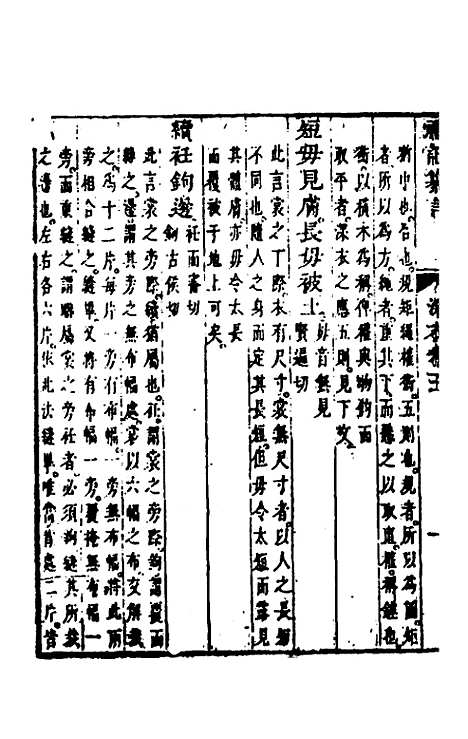 猶中也合也規矩繩權衡五則也規者所以為圓矩
者所以為方繩者重其下而懸之以取直權稱錘也
衡以橫木為稱俾權與物鈞而
取平者深衣之應五則見下文
短毋見膚長毋被土毋音無見賢遍切
此言裳之下際本有尺寸裳無尺寸者以人之長短
不同也隨人之身而定其長短但毋令太短而露見
其體膚亦毋令太長
而覆被于地上可矣
續衽鉤邊衽而審切鉤古侯切
此言裳之旁際續猶屬也衽謂裳之旁際鉤謂覆而
縫之邊謂其旁之無布幅處裳以六幅之布交解裁
之為十二片每片一旁有布幅一旁無布幅將此兩
旁相合縫之縫畢又將有布幅一旁覆掩無布幅一
旁而重縫之謂聯屬裳之旁衽者必須鉤縫其所裁
之邊也左右各六片依此法縫畢唯當背處二片